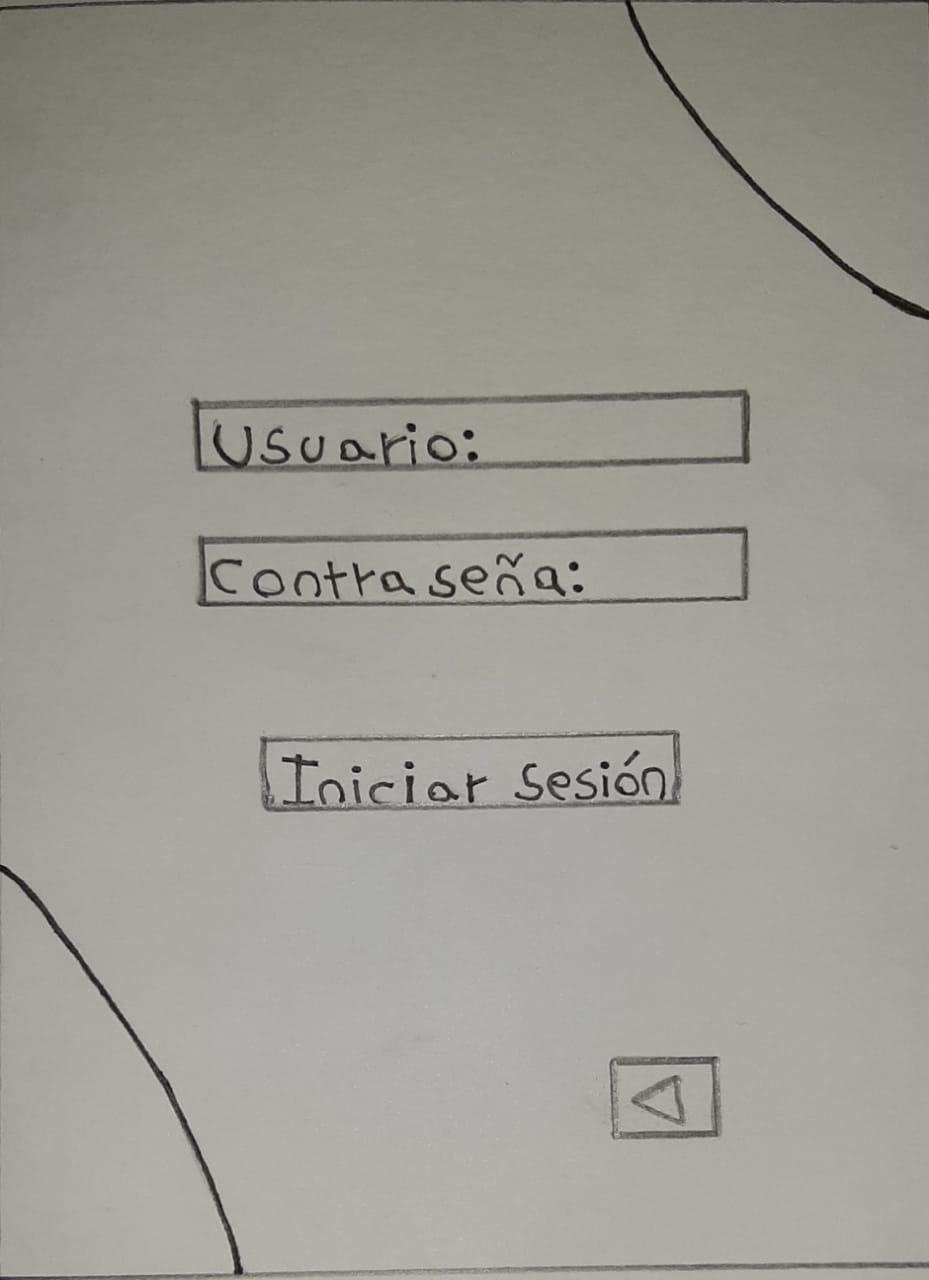 Usuario:
Contraseña:
Iniciar sesión